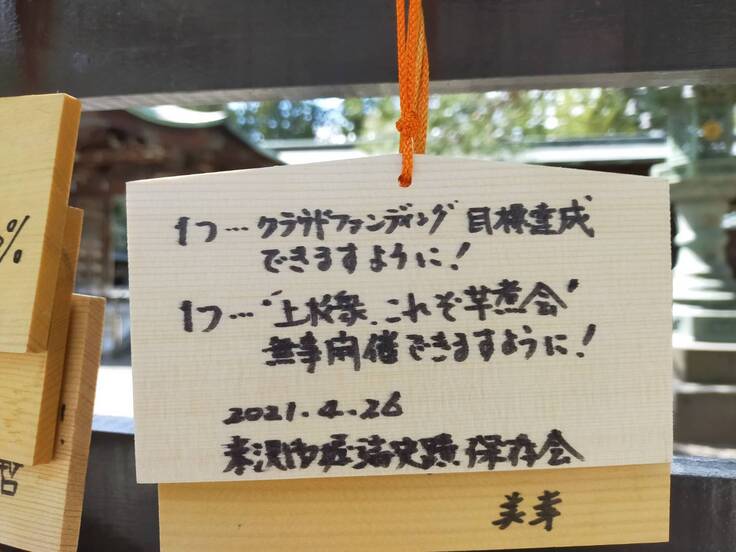 1つ…クラウドファンディング 目標達成
できますように!
1つ…“上杉家、これぞ芋煮会”
無事開催できますように!
2021.4.26
米沢御堀端史蹟保存会
美幸
%